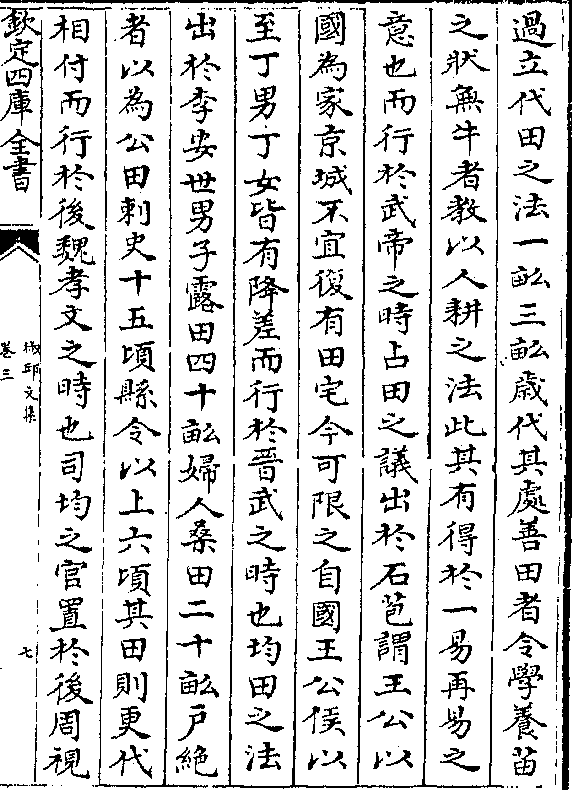 過立代田之法一畝三畝歲代其處善田者令學養苗
之狀無牛者教以人耕之法此其有得於一易再易之
意也而行於武帝之時占田之議出於石苞謂王公以
國為家京城不宜復有田宅今可限之自國王公侯以
至丁男丁女皆有降差而行於晉武之時也均田之法
出於李安世男子露田四十畝婦人桑田二十畝戶絶
者以為公田刺史十五頃縣令以上六頃其田則更代
相付而行於後魏孝文之時也司均之官置於後周視
欽定四庫全書
文集
卷三
七